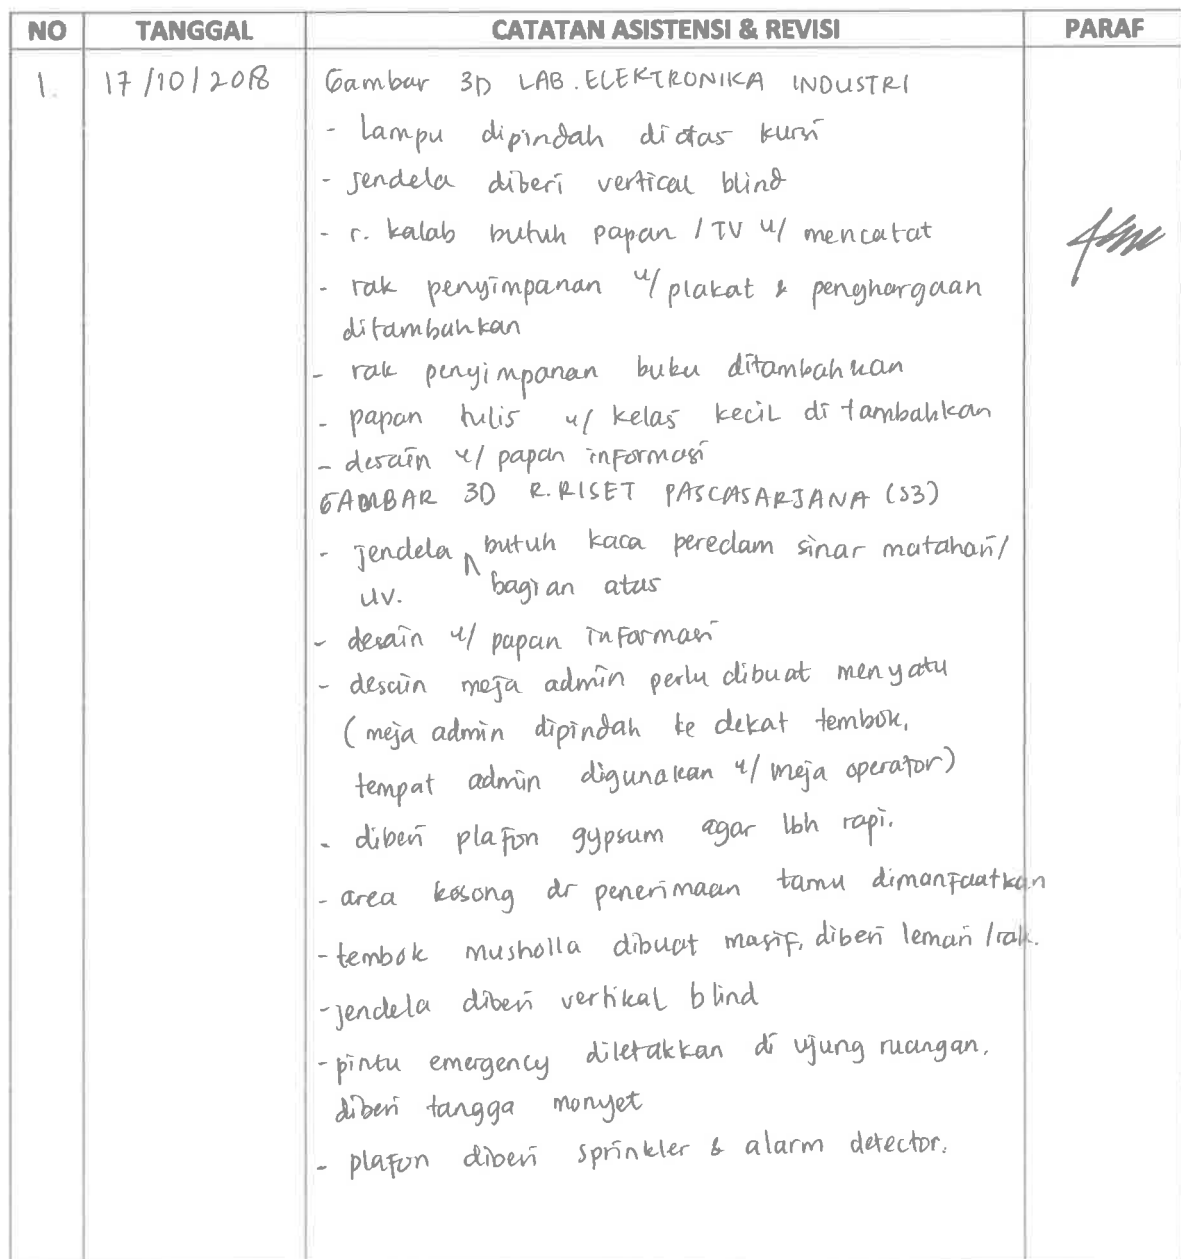 NO TANGGAL CATATAN ASISTENSI & REVISI PARAF
1. 17/10/2018 Gambar 3D LAB. ELEKTRONIKA INDUSTRI
- Lampu dipindah diatas kursi
- jendela diberi vertical blind
- r. kalab butuh papan / TV u/ mencatat
- rak penyimpanan u/ plakat & penghargaan
ditambahkan
- rak penyimpanan buku ditambahkan
- papan tulis u/ kelas kecil ditambahkan
- desain u/ papan informasi
GAMBAR 3D R. RISET PASCASARJANA (S3)
- jendela butuh kaca peredam sinar matahari/
uv. bagian atas
- desain u/ papan informasi
- desain meja admin perlu dibuat menyatu
(meja admin dipindah ke dekat tembok,
tempat admin digunakan u/ meja operator)
- diberi plafon gypsum agar lbh rapi.
- area kosong dr penerimaan tamu dimanfaatkan
- tembok musholla dibuat masif, diberi lemari /rak.
- jendela diberi vertikal blind
- pintu emergency diletakkan di ujung ruangan,
diberi tangga monyet
- plafon diberi sprinkler & alarm detector.